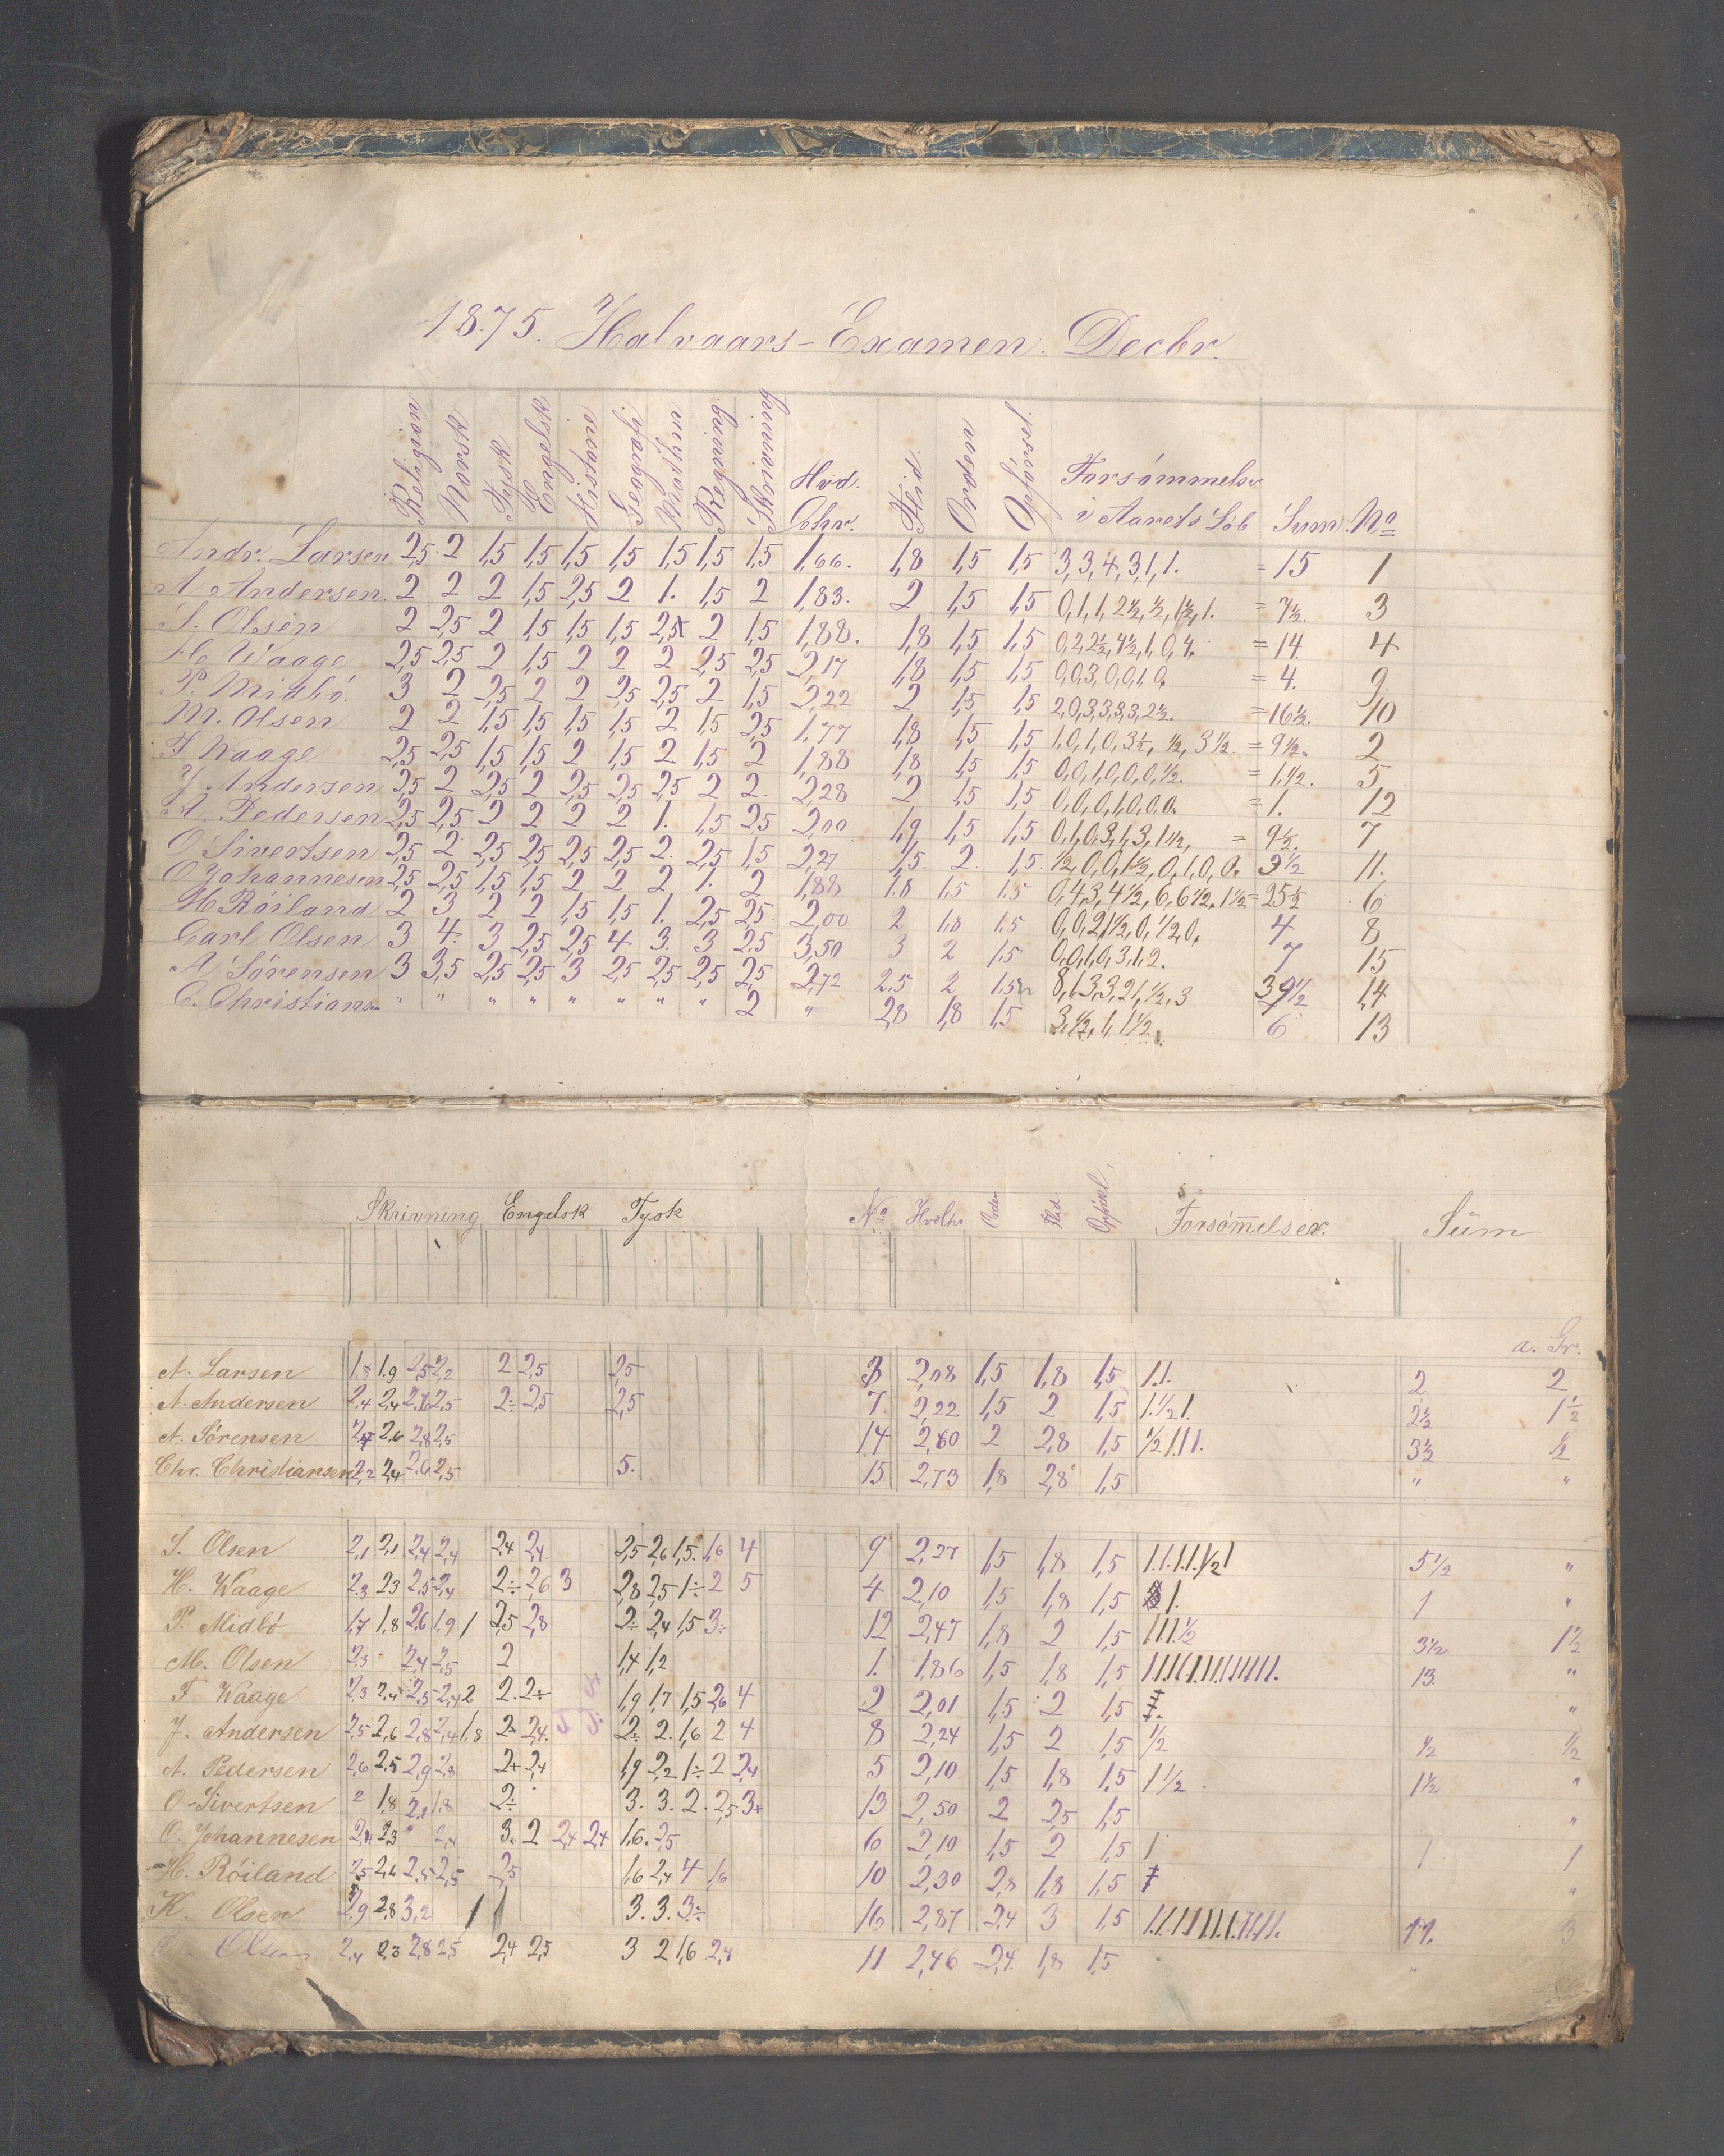 1875. Halvaars-Examen. Decbr.
Religion Norsk Tysk Engelsk Historie Geografi Regning Skrivning Hvd. Chr. Flid Orden Opførsl Forsømmelser i Aarets Løb Sum. No
Andr. Larsen 2,5 2 1,5 1,5 1,5 1,5 1,5 1,5 1,5 1,66. 1,8 1,5 1,5 3,3,4,3,1,1. = 15 1
A Andersen 2 2 2 1,5 2,5 2 1. 1,5 2 1,83. 2 1,5 1,5 0,1,1,2½,½,1½,1. = 7½. 3
S. Olsen 2 2,5 2 1,5 1,5 1,5 2,5 2 1,5 1,88. 1,8 1,5 1,5 0,2,2½,4½,1,0,4. = 14. 4
H Waage 2,5 2,5 2 1,5 2 2 2 2,5 2,5 2,17 1,8 1,5 1,5 0,0,3,0,0,1,0. = 4. 9.
P. Midbö. 3 2 2,5 2 2 2,5 2,5 2 1,5 2,22 2 1,5 1,5 2,0,3,3,3,3,2½. = 16½. 10
M. Olsen 2 2 1,5 1,5 1,5 1,5 2 1,5 2,5 1,77 1,8 1,5 1,5 1,0,1,0,3½,½,3½. = 9½. 2
F Waage 2,5 2,5 1,5 1,5 2 1,5 2 1,5 2 1,88 1,8 1,5 1,5 0,0,1,0,0,0,½. = 1½. 5
J Andersen 2,5 2 2,5 2 2,5 2,5 2,5 2 2. 2,28 2 1,5 1,5 0,0,0,1,0,0,0. = 1. 12
A. Pedersen 2,5 2,5 2 2 2 2 1. 1,5 2,5 2,00 1,9 1,5 1,5 0,1,0,3,1,3,1½, = 9½. 7
O Sivertsen 2,5 2 2,5 2,5 2,5 2,5 2. 2,5 1,5 2,27 1,5. 2. 1,5. ½,0,0,1½,0,1,0,0. 3½ 11.
O Johannesen 2,5 2,5 1,5 1,5 2 2 2 1. 2 1,88 1,8 1,5 1,5 0,4,3,4½,6,6½,1½ = 25½ 6
H Röiland 2 3 2 2 1,5 1,5 1. 2,5 2,5 2,00 2 1,8 1,5 0,0,2,1½,0,½,0, 4 8
Carl Olsen 3 4. 3 2,5 2,5 4 3. 3 2,5 3,50 3 2 1,5 0,0,1,0,3,1,2. 7 15
A Sörensen 3 3,5 2,5 2,5 3 2,5 2,5 2,5 2,5 2,72 2,5 2 1,5 8,1,3,3,21,½,3 39½ 14
C. Christians " " " " " " " " 2 " 2,8 1,8 1,5 3,½,1,1½. 6 13
Skrivning Engelsk Tysk No Hvdchr Orden Flid Opførsl. Forsøm̅elser. Süm
a. Gr.
A. Larsen 1,8 1,9 2,5 2,2 2 2,5 2,5 3 2,08 1,5 1,8 1,5 1.1. 2 2
A. Andersen 2,4 2,4 2,6 2,5 2÷ 2,5 2,5 7. 2,22 1,5 2 1,5 1.½1. 2½ 1½
A. Sörensen 2,4 2,6 2,8 2,5 14 2,80 2 2,8 1,5 ½111. 3½ ½
Chr. Christiansen 2,2 2,4 2,6 2,5 5. 15 2,73 1,8 2,8 1,5 " "
S. Olsen 2,1 2,1 2,4 2,4 2,4 2,4 2,5 2,6 1,5. 1,6 4 9 2,27 1,5 1,8 1,5 1.1.1.1.½1 5½ "
H. Waage 2,3 2,3 2,5 2,4 2÷ 2,6 3 2,8 2,5 1÷ 2 5 4 2,10 1,5 1,8 1,5 1. 1 "
P. Midbö 1,7 1,8 2,6 1,9 1 2,5 2,8 2÷ 2,4 1,5 3÷ 12 2,47 1,8 2 1,5 111.½ 3½ 1½
M. Olsen 2,3 2,4 2,5 2 1,4 1,2 1. 1,86 1,5 1,8 1,5 1111111111111. 13. "
F. Waage 2,3 2,4 2,5 2,4 2 2. 2÷ 1,9 1,7 1,5 2,6 4 2 2,01 1,5 2 1,5 "
J. Andersen 2,5 2,6 2,8 2,4 1,8 2÷ 2,4. 2÷ 2. 1,6 2 4 8 2,24 1,5 2 1,5 ½ ½ ½
A. Pedersen 2,6 2,5 2,9 2,8 2+ 2,4 1,9 2,2 1÷ 2 2,4 5 2,10 1,5 1,8 1,5 1½ 1½ "
O. Sivertsen 2 1,8 2,1 1,8 2÷ 3. 3. 2. 2,5 3+ 13 2,50 2 2,5 1,5 "
O. Johannesen 2,4 2,3 2,4 3. 2 2,4 2,4 1,6. 2,5 6 2,10 1,5 2 1,5 1 1 1
H. Röiland 2,5 2,6 2,5 2,5 2,5 1,6 2,4 4 1,6 10 2,30 2,8 1,8 1,5 "
K. Olsen 2,9 2,8 3,2 3. 3. 3÷ 16 2,87 2,4 3 1,5 11. 3
Olsen 2,4 2,3 2,8 2,5 2,4 2,5 3 2 1,6 2,4 11 2,46 2,4 1,8 1,5 "